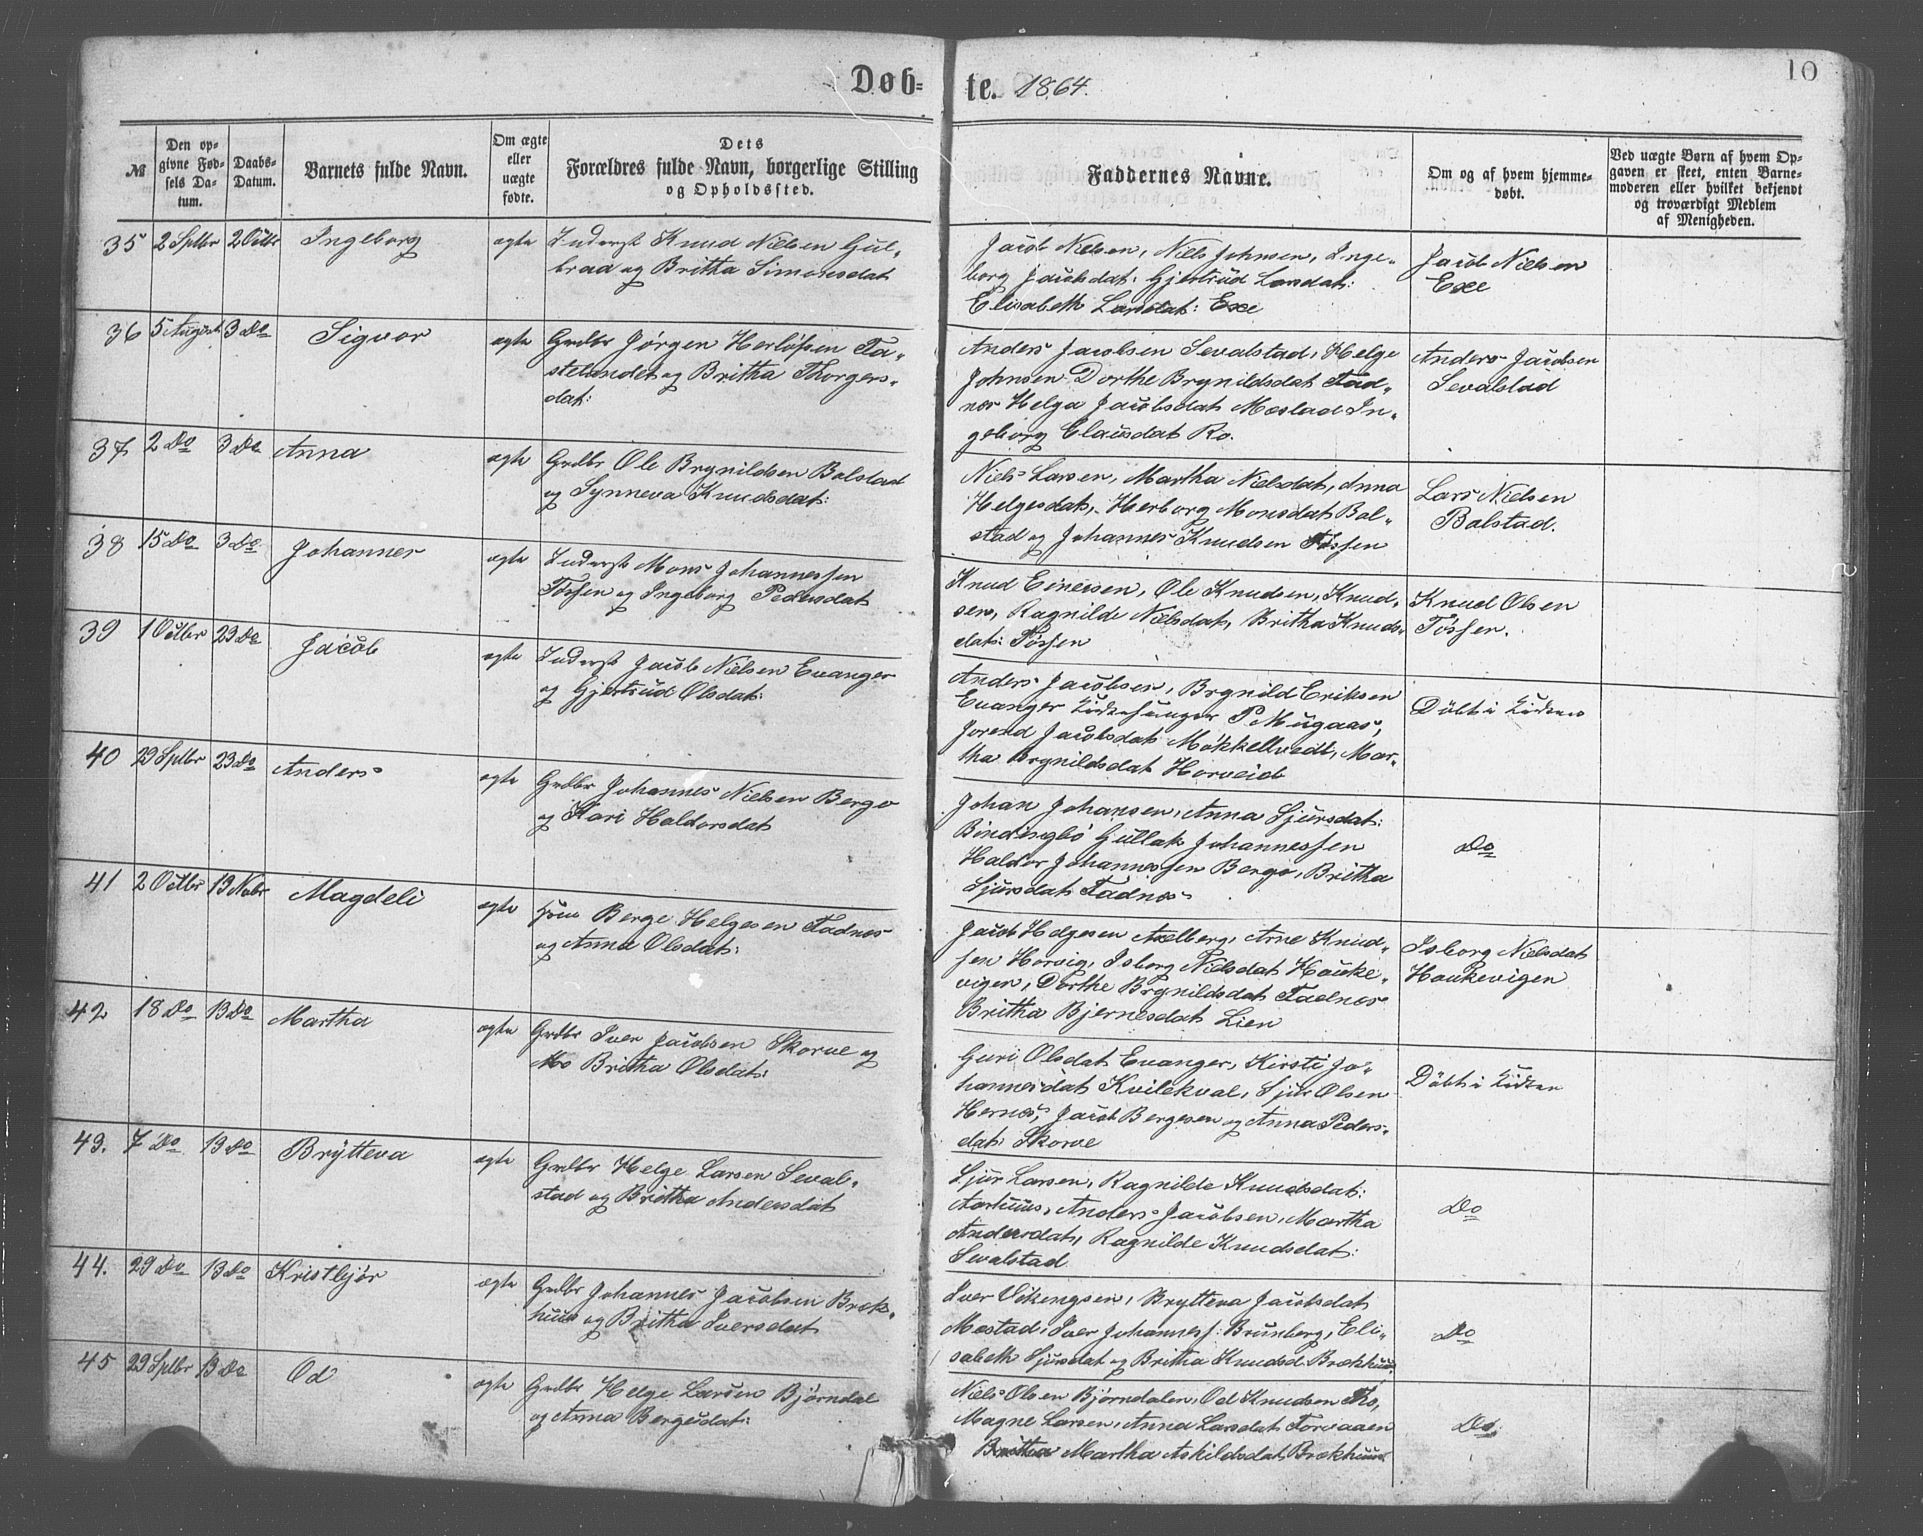 Døb= te. 1864. 10
№
Den op-
givne Fød-
sels Da-
tum.
Daabs-
Datum.
Barnets fulde Navn.
Om ægte
eller
uægte
fødte.
Dets
Forældres fulde Navn, borgerlige Stilling
og Opholdssted.
Faddernes Navne.
Om og af hvem hjemme-
døbt.
Ved uægte Børn af hvem Op-
gaven er skeet, enten Barne-
moderen eller hvilket bekjendt
og troværdigt Medlem
af Menigheden.
35 2 Sptbr 2 Octbr Ingeborg ægte Inderst Knud Nielsen Gul-
brad og Britha Simonsdat
Jacob Nielsen, Niels Johnsen, Inge-
borg Jacobsdat: Gjertrud Larsdat:
Elisabeth Larsdat: Exe
Jacob Nielsen
Exe
36 5 August 3 Do Sigvor ægte Grdbr Jørgen Herlofsen Ta-
stelandet og Britha Thorgers-
dat:
Anders Jacobsen Sevalstad, Helge
Johnsen Dorthe Brynildsdat Fad-
nes Helga Jacobsdat Mæstad In-
geborg Clausdat Ro.
Anders Jacobsen
Sevalstad
37 2 Do 3 Do Anna ægte Grdbr Ole Brynildsen Bolstad
og Synneva Knudsdat:
Niels Larsen, Martha Nielsdat, Anna
Helgesdat, Herborg Monsdat Bol-
stad og Johannes Knudsen Føssen
Lars Nielsen
Bolstad.
38 15 Do 3 Do Johannes ægte Inderst Mons Johannessen
Føssen og Ingeborg Pedersdat
Knud Einersen, Ole Knudsen, Knud-
sen, Ragnilde Nielsdat, Britha Knuds-
dat: Føssen
Knud Olsen
Føssen.
39 1 Octbr 23 Do Jacob ægte Inderst Jacob Nielsen Evanger
og Gjertrud Olsdat:
Anders Jacobsen, Brynild Eriksen
Evanger Kirkesanger P Mugaas,
Jorend Jacobsdat Møkkelvedt, Mar-
tha Brynildsdat Horveid
Döbt i Kirken
40 29 Sptbr 23 Do Anders ægte Grdbr Johannes Nielsen Berge
og Kari Haldorsdat
Johan Johansen, Anna Sjursdat:
Bindingbø Gullak Johannessen
Haldor Johannessen Berge, Britha
Sjursdat Fadnes
Do
41 2 Octbr 13 Nvbr Magdeli ægte Berge Helgesen Fadnes
og Anna Olsdat:
Jacob Helgesen Axelberg, Arne Knud-
sen Horvig, Isborg Nielsdat Hauke-
vigen, Dorthe Brynildsdat Fadnes
Britha Bjernesdat Lien
Isborg Nielsdat
Haukevigen
42 18 Do 13 Do Martha ægte Grdbr Iver Jacobsen Skorve og
Britha Olsdat:
Guri Olsdat Evanger, Kirsti Jo-
hannesdat Kvilekval, Sjur Olsen
Hernes, Jacob Bergesen og Anna Peders-
dat: Skorve
Döbt i Kirken
43. 7 Do 13 Do Brÿtteva ægte Grdbr Helge Larsen Seval-
stad og Britha Andersdat
Sjur Larsen, Ragnilde Knudsdat:
Aarhuus, Anders Jacobsen, Martha
Andersdat, Ragnilde Knudsdat:
Sevalstad
Do
44. 29 Do 13 Do Kristbjør ægte Grdbr Johannes Jacobsen Bræk-
huus og Britha Iversdat
Iver Vikingsen, Brytteva Jacobsdat
Mæstad, Iver Johanness: Brunberg, Eli-
sabeth Sjursdat og Britha Knudsd. Brækhuus
Do
45 29 Sptbr 13 Do Od ægte Grdbr Helge Larsen Bjørndal
og Anna Bergesdat:
Niels Olsen Bjørndalen, Od Knudsen Fos,
Magne Larsen, Anna Larsdat
Martha Askildsdat Brækhuus
Do.